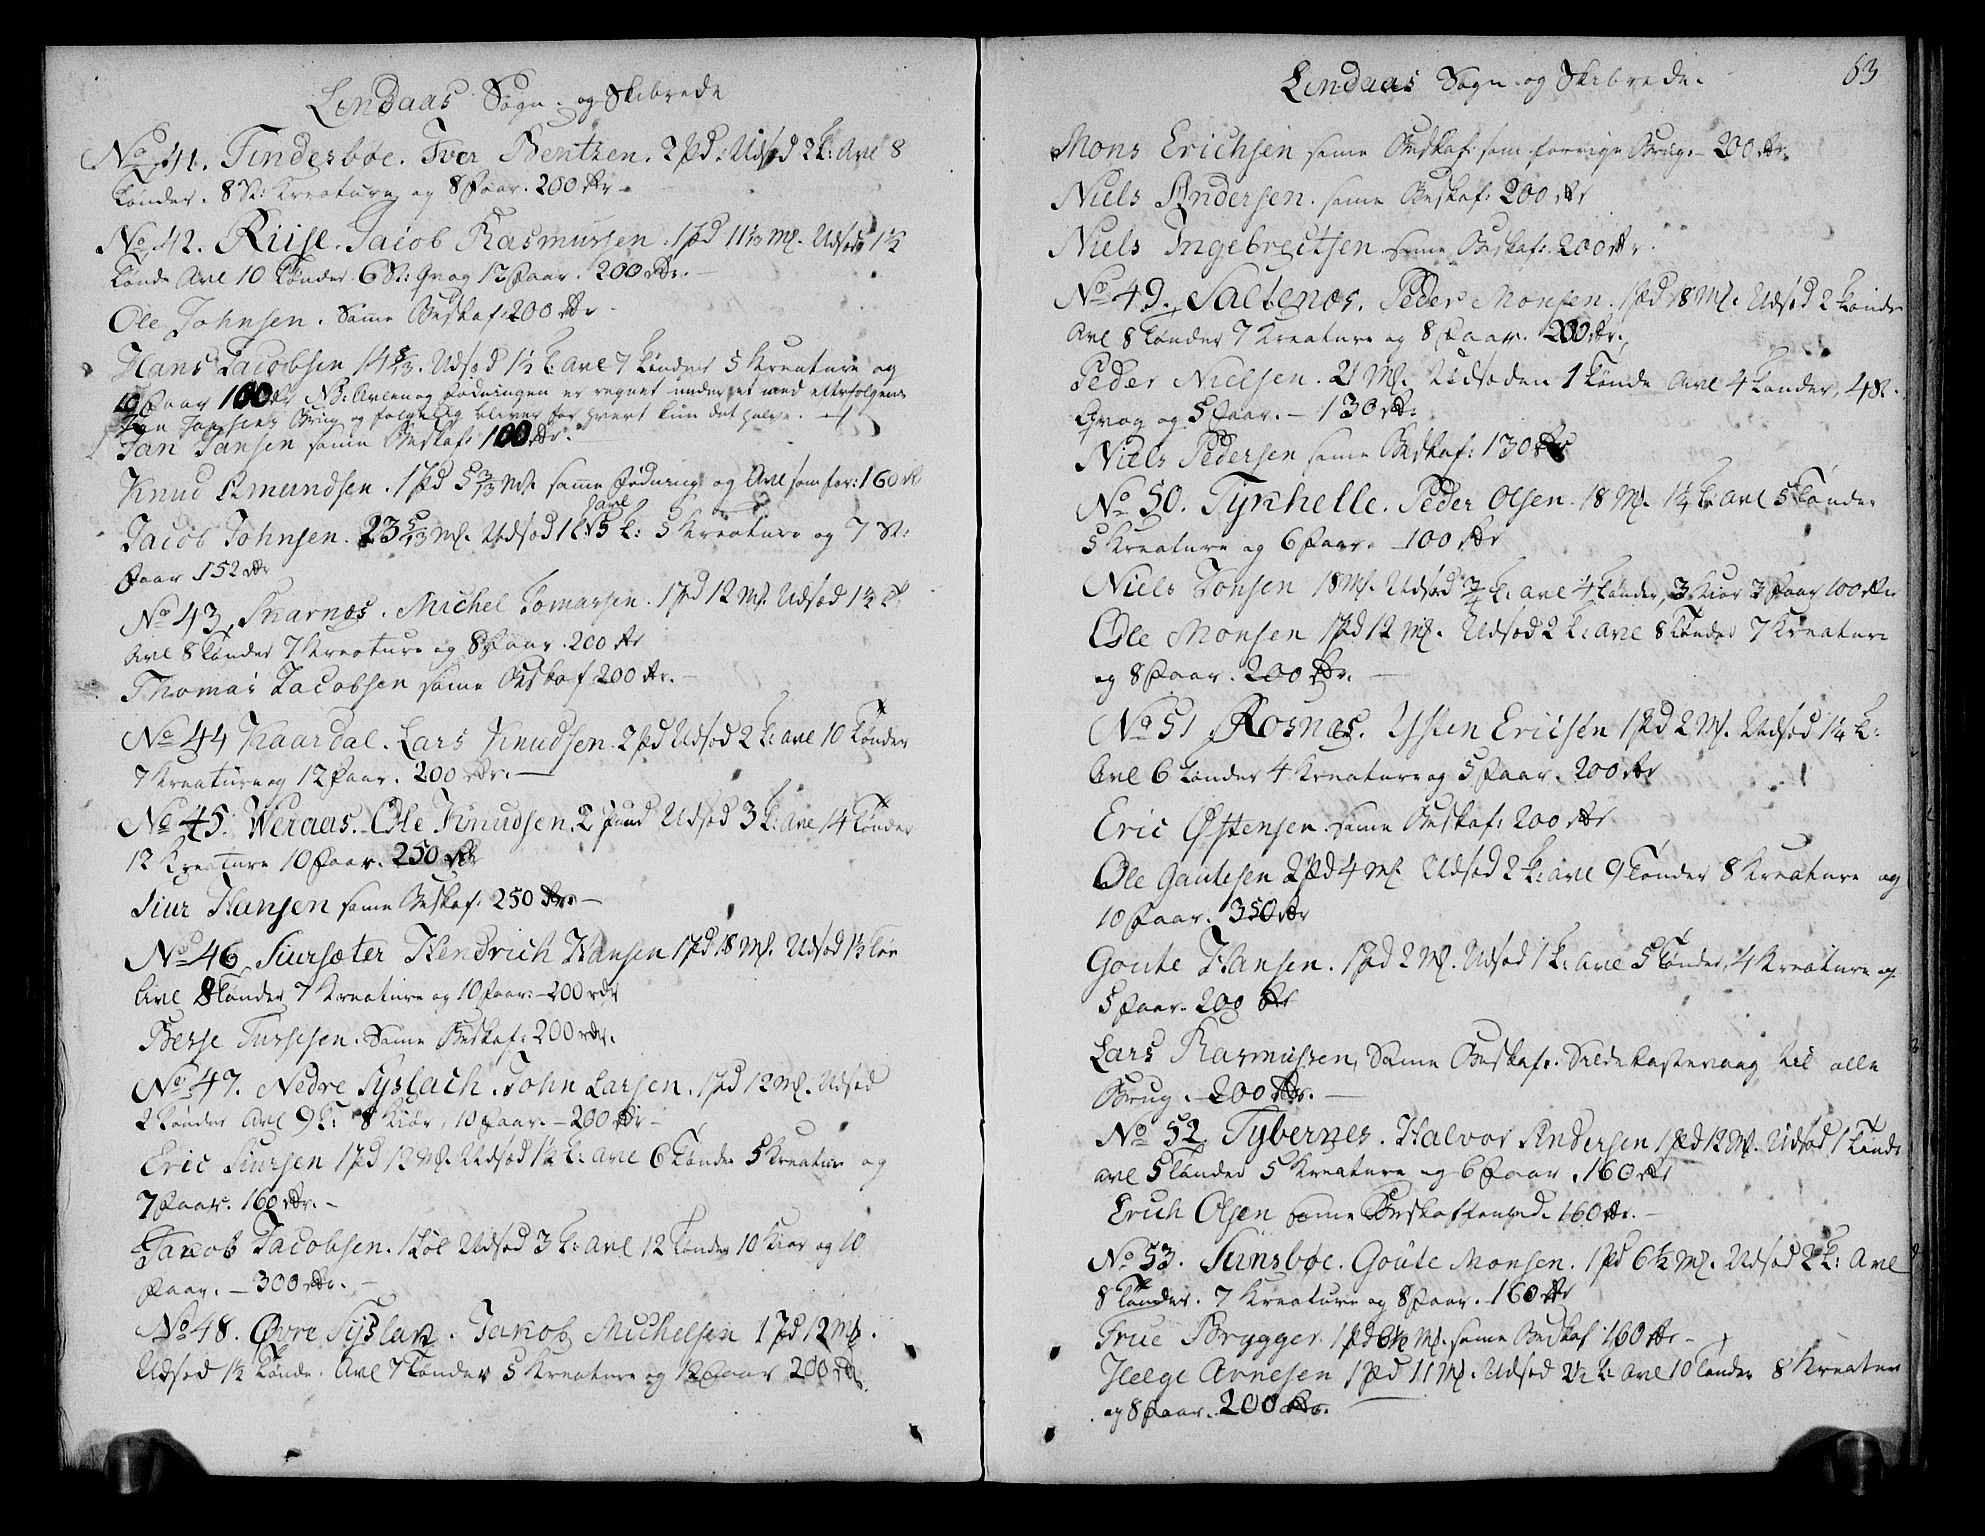 Lindaas Sogn og Skibrede
No 41. Tindesbøe. Iver Bentsen. 2 Pd: Udsæd 2 t: Avl 8
tønder. 8 St: Kreature og 8 Faar. 200 Rdr
No 42. Riise. Jacob Rasmussen. 1 Pd 11 1/3 Mk. Udsæd 1 1/2
tønde Avl 10 tønder 6 St: Qvæg 12 Faar. 200 Rdr.
Ole Johnsen. Samme Beskaf: 200 Rdr
Hans Jacobsen 14 5/13. Udsæd 1 1/2 t: avl 7 tønder 5 Kreature og
10 Faar 100 Rdr NB: Avlen og Fødningen er regnet under et med efterfølgende
Jan Jansens Brug og følgelig bliver for hvert kun det halve.
Jan Jansen samme Beskaf: 100 Rdr.
Knud Amundsen. 1 Pd 5 3/13 Mk. samme Fødning og Avl som for: 160 Rd
Jacob Johnsen. 23 5/13 Mk. Udsæd 1 t: avl 5 t: 5 Kreature og 7 St:
Faar 152 Rdr
No 43. Skarnæs. Michel Tomassen. 1 Pd 12 Mk. Udsæd 1 1/2 t.
Avl 8 tønder 7 Kreature og 8 Faar. 200 Rdr
Thomas Jacobsen samme Beskaf 200 Rdr.
No 44 Kaardal. Lars Knudsen. 2 Pd Udsæd 2 t: avl 10 tønder
7 Kreature og 12 Faar. 200 Rdr.
No 45. Weraas. Ole Knudsen. 2 Pund Udsæd 3 t: avl 14 tønder
12 Kreature 10 Faar. 250 Rdr
Siur Hansen samme Beskaf: 250 Rdr.
No 46. Siursæter Hendrich Hansen 1 Pd 18 Mk. Udsæd 1 1/2 tøn
Avl 8 tønder 7 Kreature og 10 Faar. 200 Rdr
Berse Siursen. Samme Beskaf: 200 Rdr.
No 47. Nedre Syslach. John Larsen. 1 Pd 12 Mk. Udsæd
2 tønder Avl 9 t: 8 Kiør, 10 Faar. 200 Rdr
Eric Siursen 1 Pd 12 Mk. Udsæd 1 1/2 t: avl 6 tønder 5 Kreature og
7 Faar. 160 Rdr.
Jakob Jacobsen. 1 Løb Udsæd 3 t: avl 12 tønder 10 Kiør og 10
Faar. 300 Rdr.
No 48. Øvre Syslak. Jakob Michelsen 1 Pd 12 Mk.
Udsæd 1 1/2 tønde. Avl 7 tønder 5 Kreature og 12 Faar 200 Rd.
Lindaas Sogn og Skibrede.
63
Mons Erichsen samme Beskaf: som forrige Brug. 200 Rdr.
Niels Andersen. samme Beskaf: 200 Rdr
Niels Ingebrectsen samme Beskaf: 200 Rdr.
No 49. Saltenæs. Peder Monsen. 1 Pd 18 Mk. Udsæd 2 tønder
Avl 8 tønder 7 Kreature og 8 Faar. 200 Rdr.
Peder Nielsen. 21 Mk. Udsæden 1 tønde Avl 4 tønder, 4 St.
Qvæg og 5 Faar. 130 Rdr:
Niels Pedersen samme Beskaf: 130 Rdr
No 50. Tykhelle. Peder Olsen. 18 Mk. 1 1/4 t: avl 5 tønder
5 Kreature og 6 Faar. 100 Rdr
Niels Jonsen 18 Mk. Udsæd 3/4 t: avl 4 tønder, 3 Kiør 3 Faar 100 Rdr
Ole Monsen 1 Pd 12 Mk. Udsæd 2 t: avl 8 tønder 7 Kreature
og 8 Faar. 200 Rdr.
No 51 Rosnæs. Ysten Ericsen 1 Pd 2 Mk. Udsæd 1 1/4 t:
Avl 6 tønder 4 Kreature og 5 Faar. 200 Rdr
Eric Østensen samme Beskaf: 200 Rdr
Ole Gautesen 2 Pd 4 Mk Udsæd 2 t: avl 9 tønder 8 Kreature og
10 Faar. 350 Rdr
Goute Hansen. 1 Pd 2 Mk. Udsæd 1 t: avl 5 tønder, 4 Kreature og
5 Faar. 200 Rdr
Lars Rasmussen, Samme Beskaf: Sildekastevaag til alle
Brug. 200 Rdr.
No 52. Tybernes. Halvor Andersen 1 Pd 12 Mk. Udsæd 1 tønde
avl 5 tønder 5 Kreature og 6 Faar. 160 Rdr
Erich Olsen samme Beskaffenhed. 160 Rdr.
No 53. Sunsbøe. Goute Monsen. 1 Pd 6 1/2 Mk. Udsæd 2 t: Avl
8 tønder. 7 Kreature og 8 Faar. 160 Rdr
True Brygger 1 Pd 6 1/2 Mk. samme Beskaf 160 Rdr
Helge Arnesen 1 Pd 11 Mk. Udsæd 2 1/2 t: avl 10 tønder 8 Kreatur
og 8 Faar. 200 Rdr.